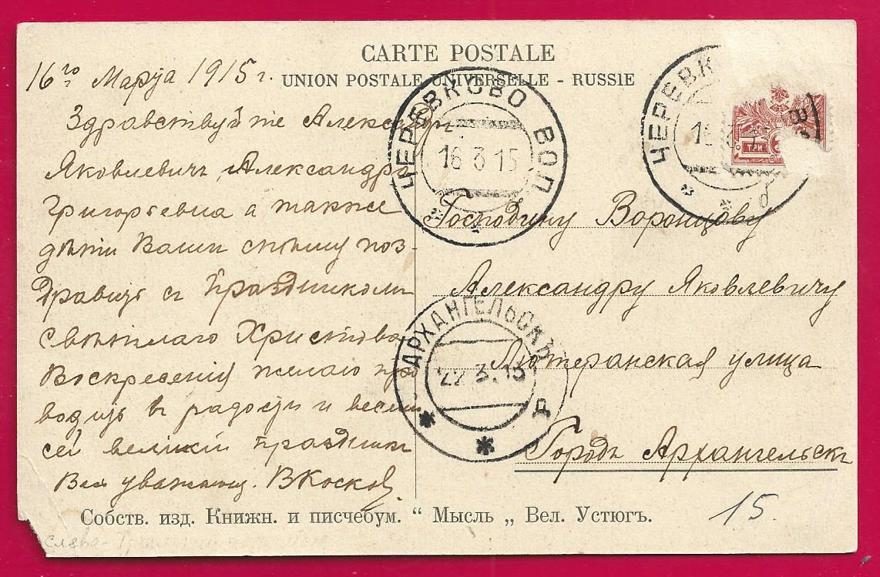 CARTE POSTALE
UNION POSTALE UNIVERSELLE - RUSSIE
16го Марта 1915 г.
Здравствуйте Александр
Яковлевич, Александра
Григорьевна а также
дѣти Ваши спѣшу поз-
дравить съ Праздником
свѣтлаго Христова
Воскресения желаю про
водить въ радости и весел
сей великий праздник
Вас уважающ. В Коск
ЧЕРЕВКОВО ВОЛ
16 3 15
ЧЕРЕВК
ТРИ
Господину Воронцову
Александру Яковлевичу
Лютеранская улица
Городъ Архангельск
АРХАНГЕЛЬСКЪ
22.3.15
Собств. изд. Книжн. и писчебум. “ Мысль „ Вел. Устюгъ.
15.